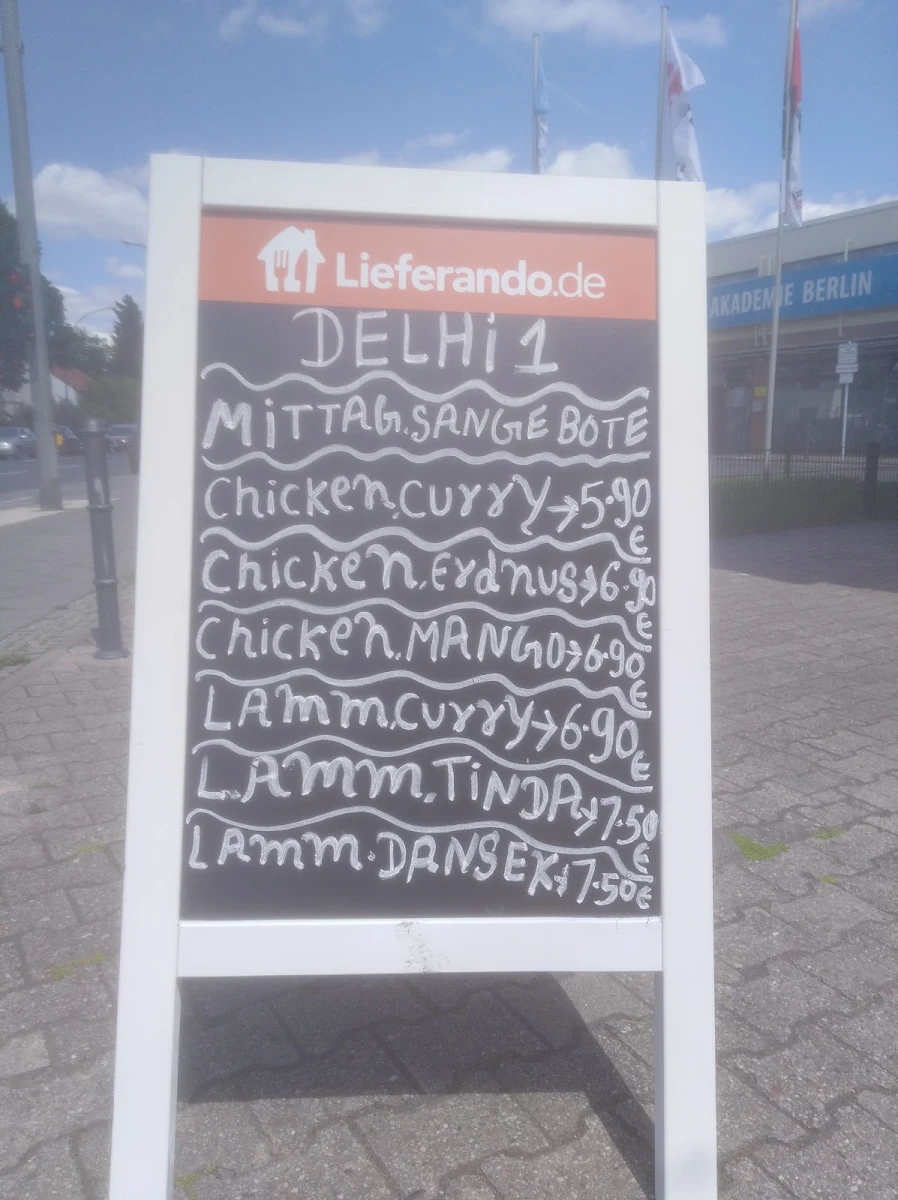 Lieferando.de
DELHi 1
MiTTAG.SANGEBOTE
Chicken.Curry→5.90 €
Chicken.Erdnus→6.90 €
Chicken.MANGO→6.90 €
LAmm.Curry→6.90 €
LAmm.TiNDA→7.50 €
LAmm.DANSEK→7.50 €
AKADEMIE BERLIN